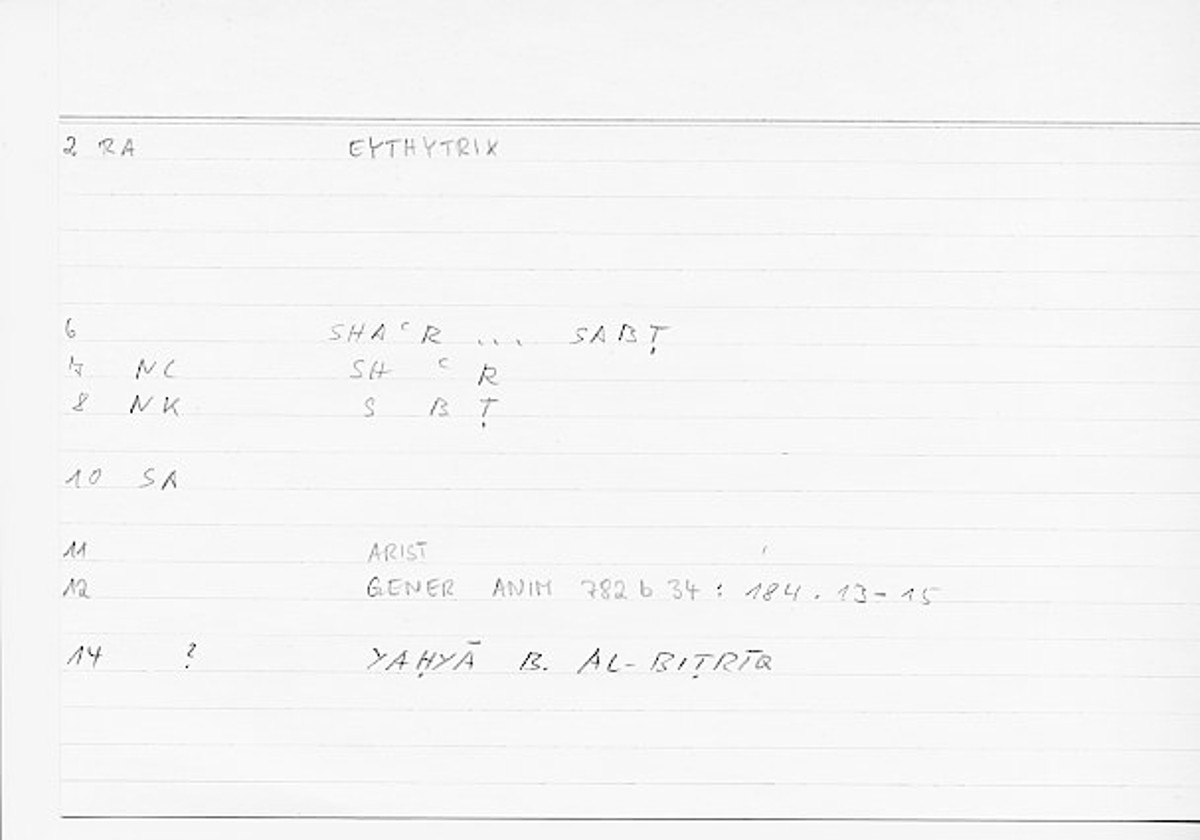 2 RA EYTHYTRIX
6 SHAʿR ... SABṬ
7 NC SH ʿ R
8 NK S B Ṭ
10 SA
11 ARIST
12 GENER ANIM 782 b 34 : 184 . 13-15
14 ? YAḤYĀ B. AL-BIṬRĪQ